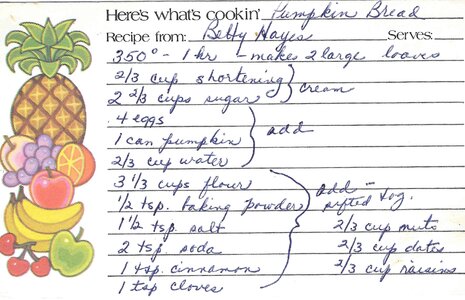 Here's what's cookin' Pumpkin Bread
Recipe from: Betty Hayes Serves:
350° - 1 hr - makes 2 large loaves
2/3 cup shortening
2 2/3 cups sugar } cream
4 eggs
1 can pumpkin } add
2/3 cup water
3 1/3 cups flour
1/2 tsp. baking powder
1 1/2 tsp. salt
2 tsp. soda
1 tsp. cinnamon
1 tsp cloves
} add - sifted tog.
2/3 cup nuts
2/3 cup dates
2/3 cup raisins